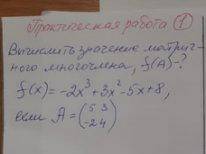 Практическая работа ①
Вычислить значение матрич-
ного многочлена, f(A)-?
f(x)=-2x³+3x²-5x+8,
если A=(5 3
-2 4)